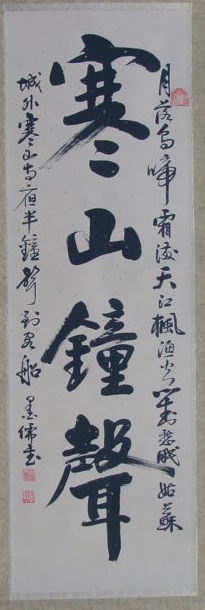 寒山鐘聲
月落烏啼霜滿天江楓漁火對愁眠姑蘇
城外寒山寺夜半鐘聲到客船 墨儒書